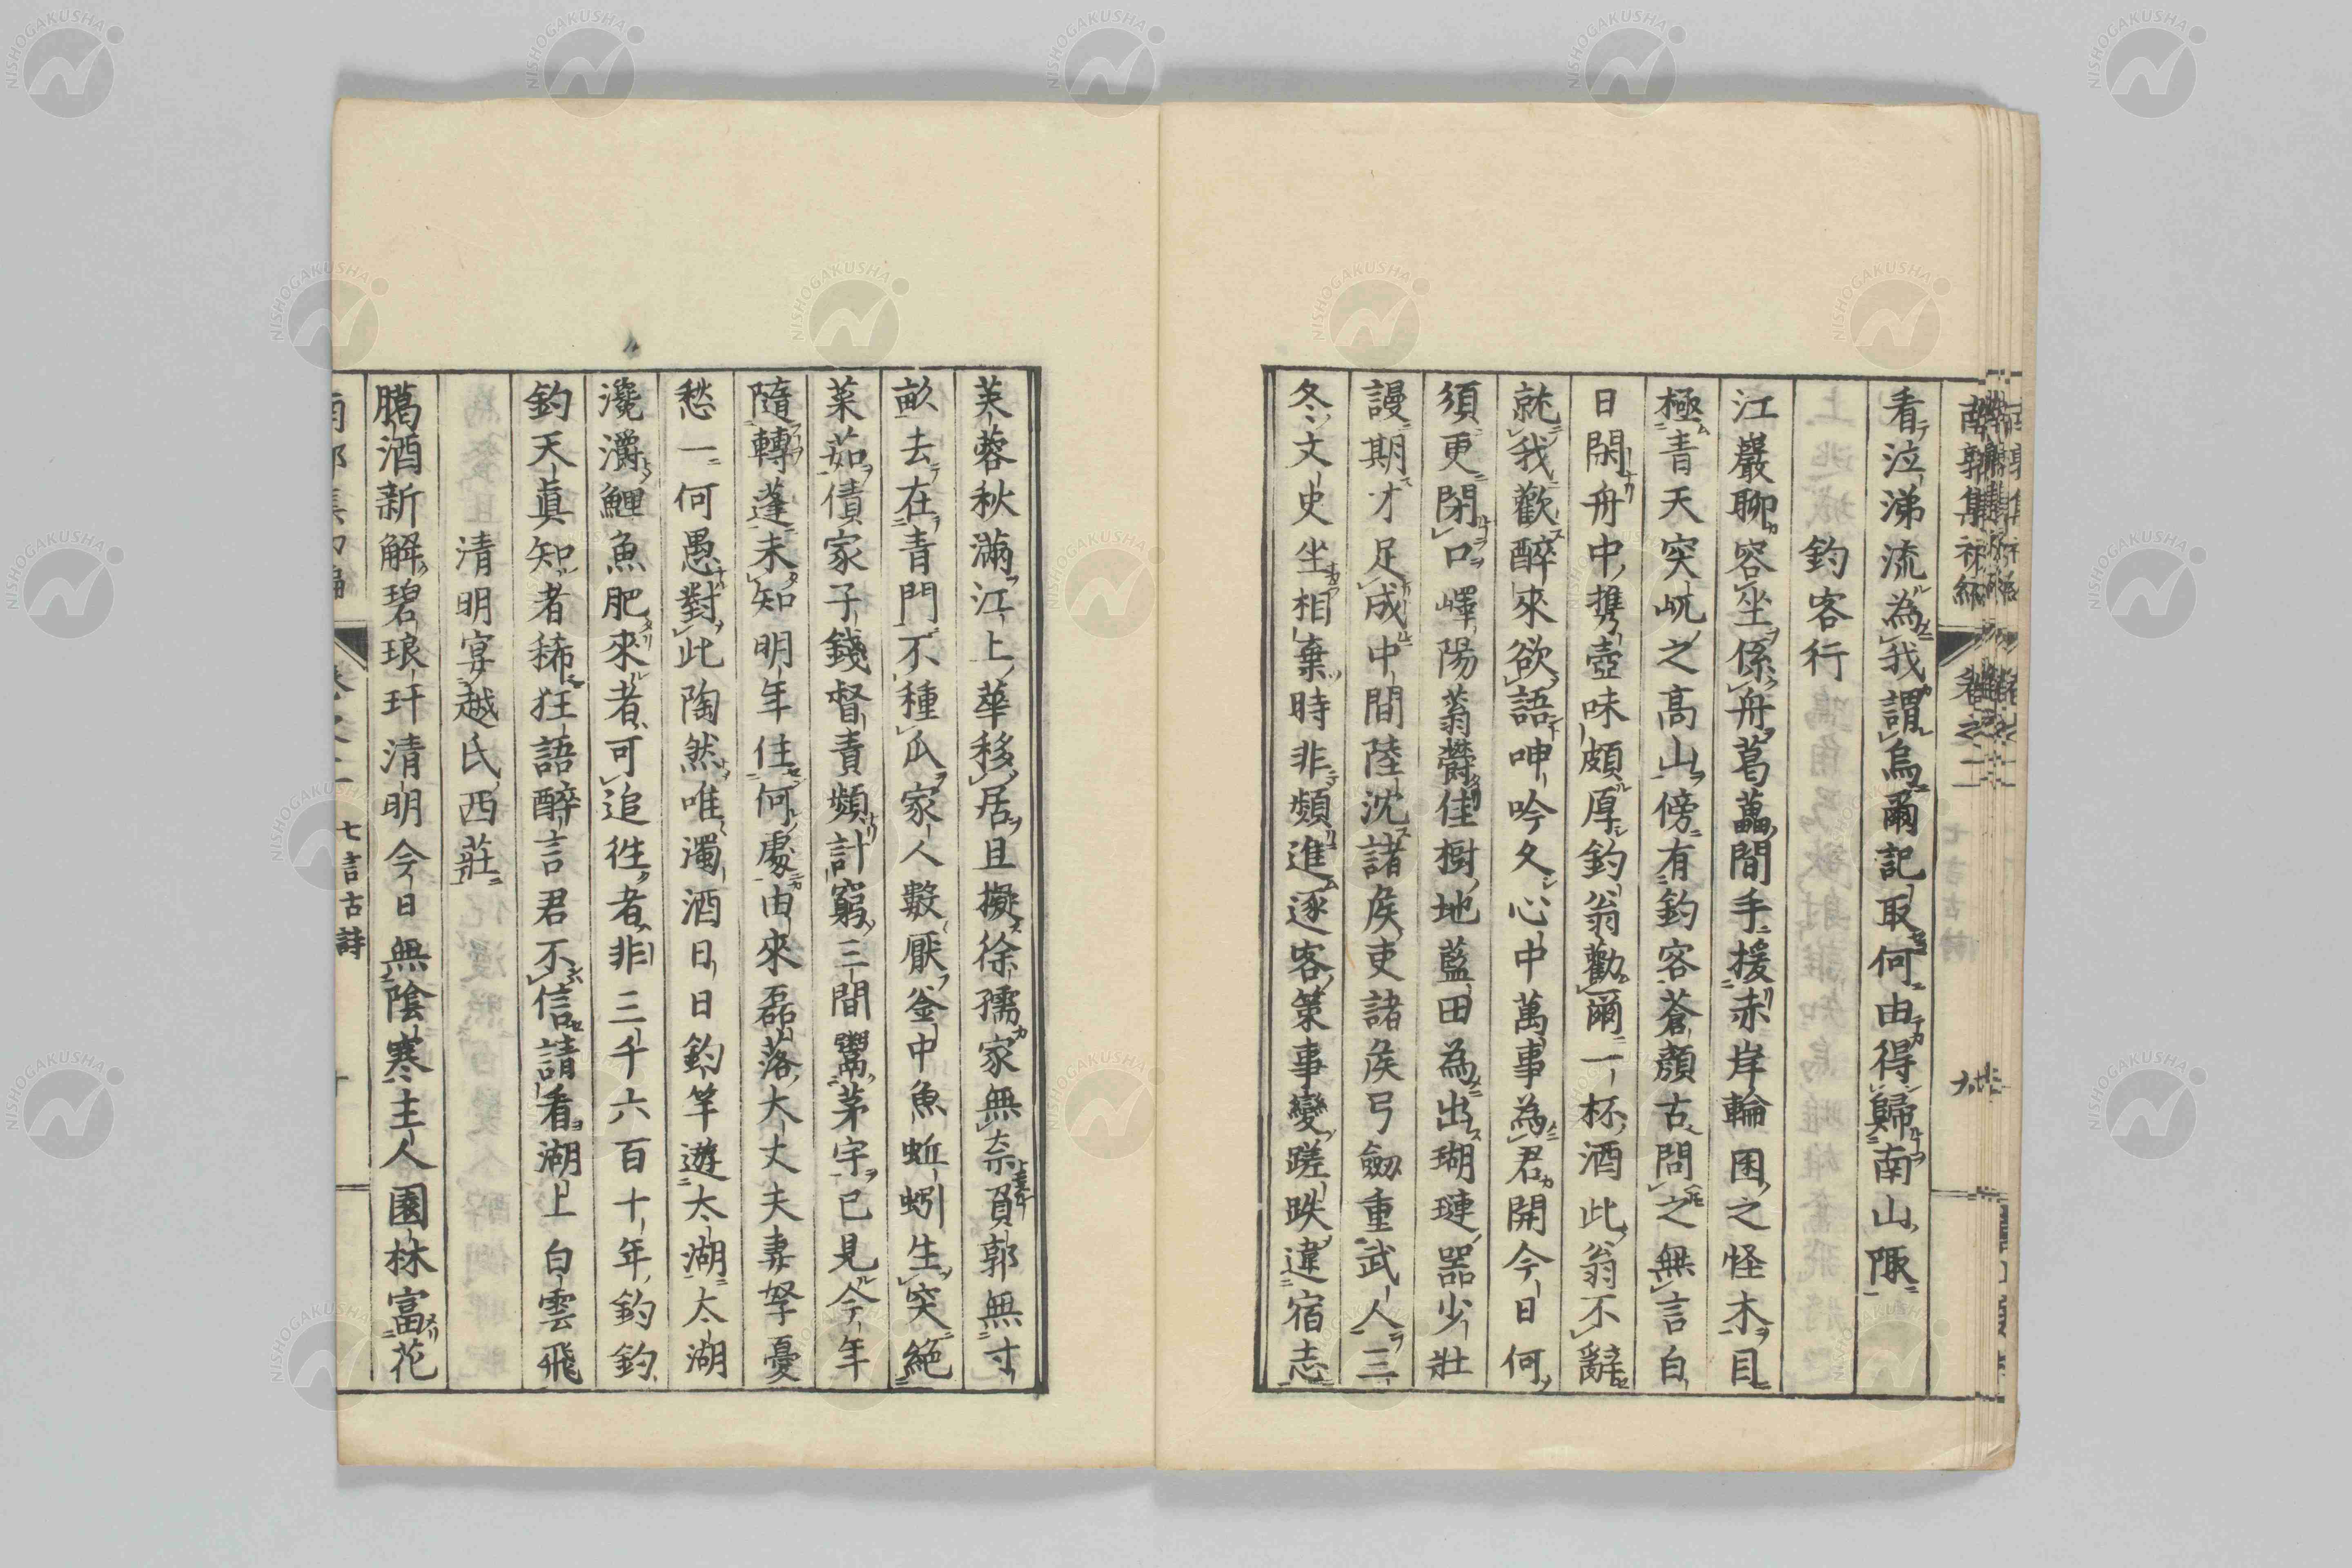 看泣涕流為我謂烏爾記取何由得歸南山陬
釣客行
江巖聊容坐係舟葛藟間手援赤岸輪囷之怪木目
極青天突屼之高山傍有釣客蒼顏古問之無言白
日閑舟中携壺味頗厚釣翁勸爾一杯酒此翁不辭
就我歡醉來欲語呻吟久心中萬事為君開今日何
須更閉口嶧陽蓊欝佳樹地藍田為出瑚璉器少壯
謾期才足成中間陸沈諸侯吏諸侯弓劔重武人三
冬文史坐相棄時非頻進逐客策事變蹉跌違宿志
芙蓉秋滿江上華移居且擬徐孺家無奈負郭無寸
畝去在青門不種瓜家人數厭釜中魚蚯蚓生突絕
菜茹債家子錢督責頻計窮三間鬻茅宇已見今年
隨轉蓬未知明年住何處由來磊落大丈夫妻孥憂
愁一何愚對此陶然唯濁酒日日釣竿遊太湖太湖
瀺灂鯉魚肥來者可追徃者非三千六百十年釣釣
釣天眞知者稀狂語醉言君不信請看湖上白雲飛
清明宴越氏西莊
臈酒新解碧琅玕清明今日無陰寒主人園林富花
七言古詩
NISHOGAKUSHA